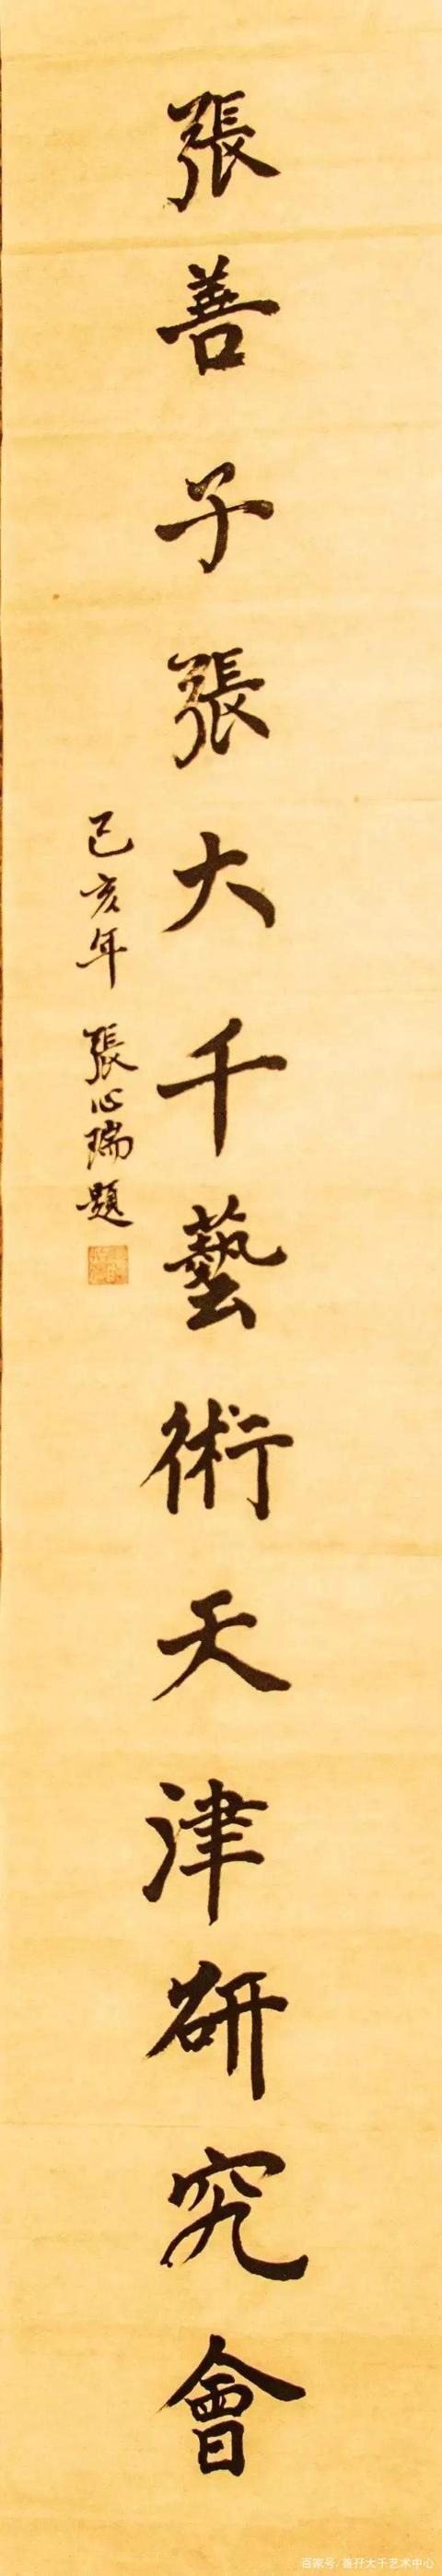 張善子張大千藝術天津研究會
己亥年 張心瑞題
百家号/善孖大千艺术中心